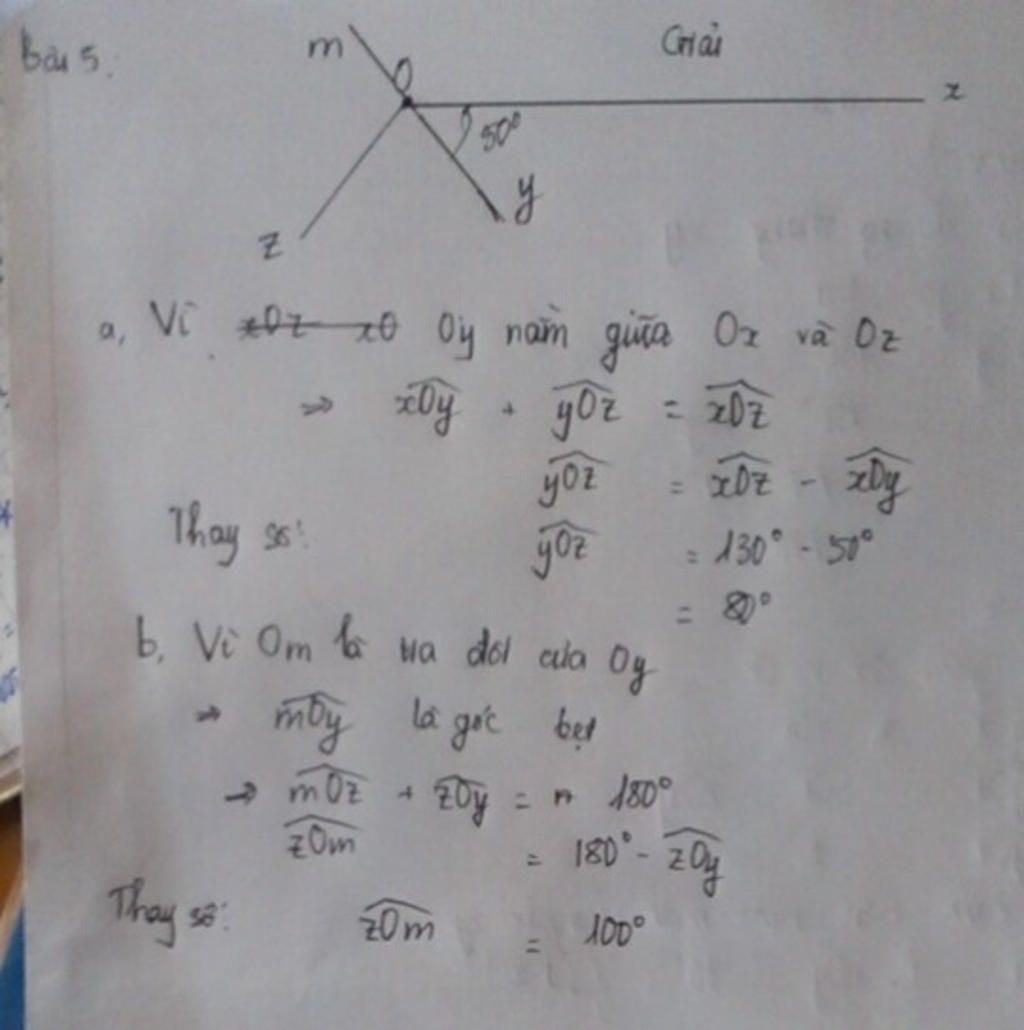 Bài 5:
Giải
m
O
x
50°
y
z
a, Vì xOz xO Oy nằm giữa Ox và Oz
⇒ \widehat{xOy} + \widehat{yOz} = \widehat{xOz}
\widehat{yOz} = \widehat{xOz} - \widehat{xOy}
Thay số: \widehat{yOz} = 130° - 50°
= 80°
b, Vì Om là tia đối của Oy
⇒ \widehat{mOy} là góc bẹt
⇒ \widehat{mOz} + \widehat{zOy} = 180°
\widehat{zOm} = 180° - \widehat{zOy}
Thay số: \widehat{zOm} = 100°